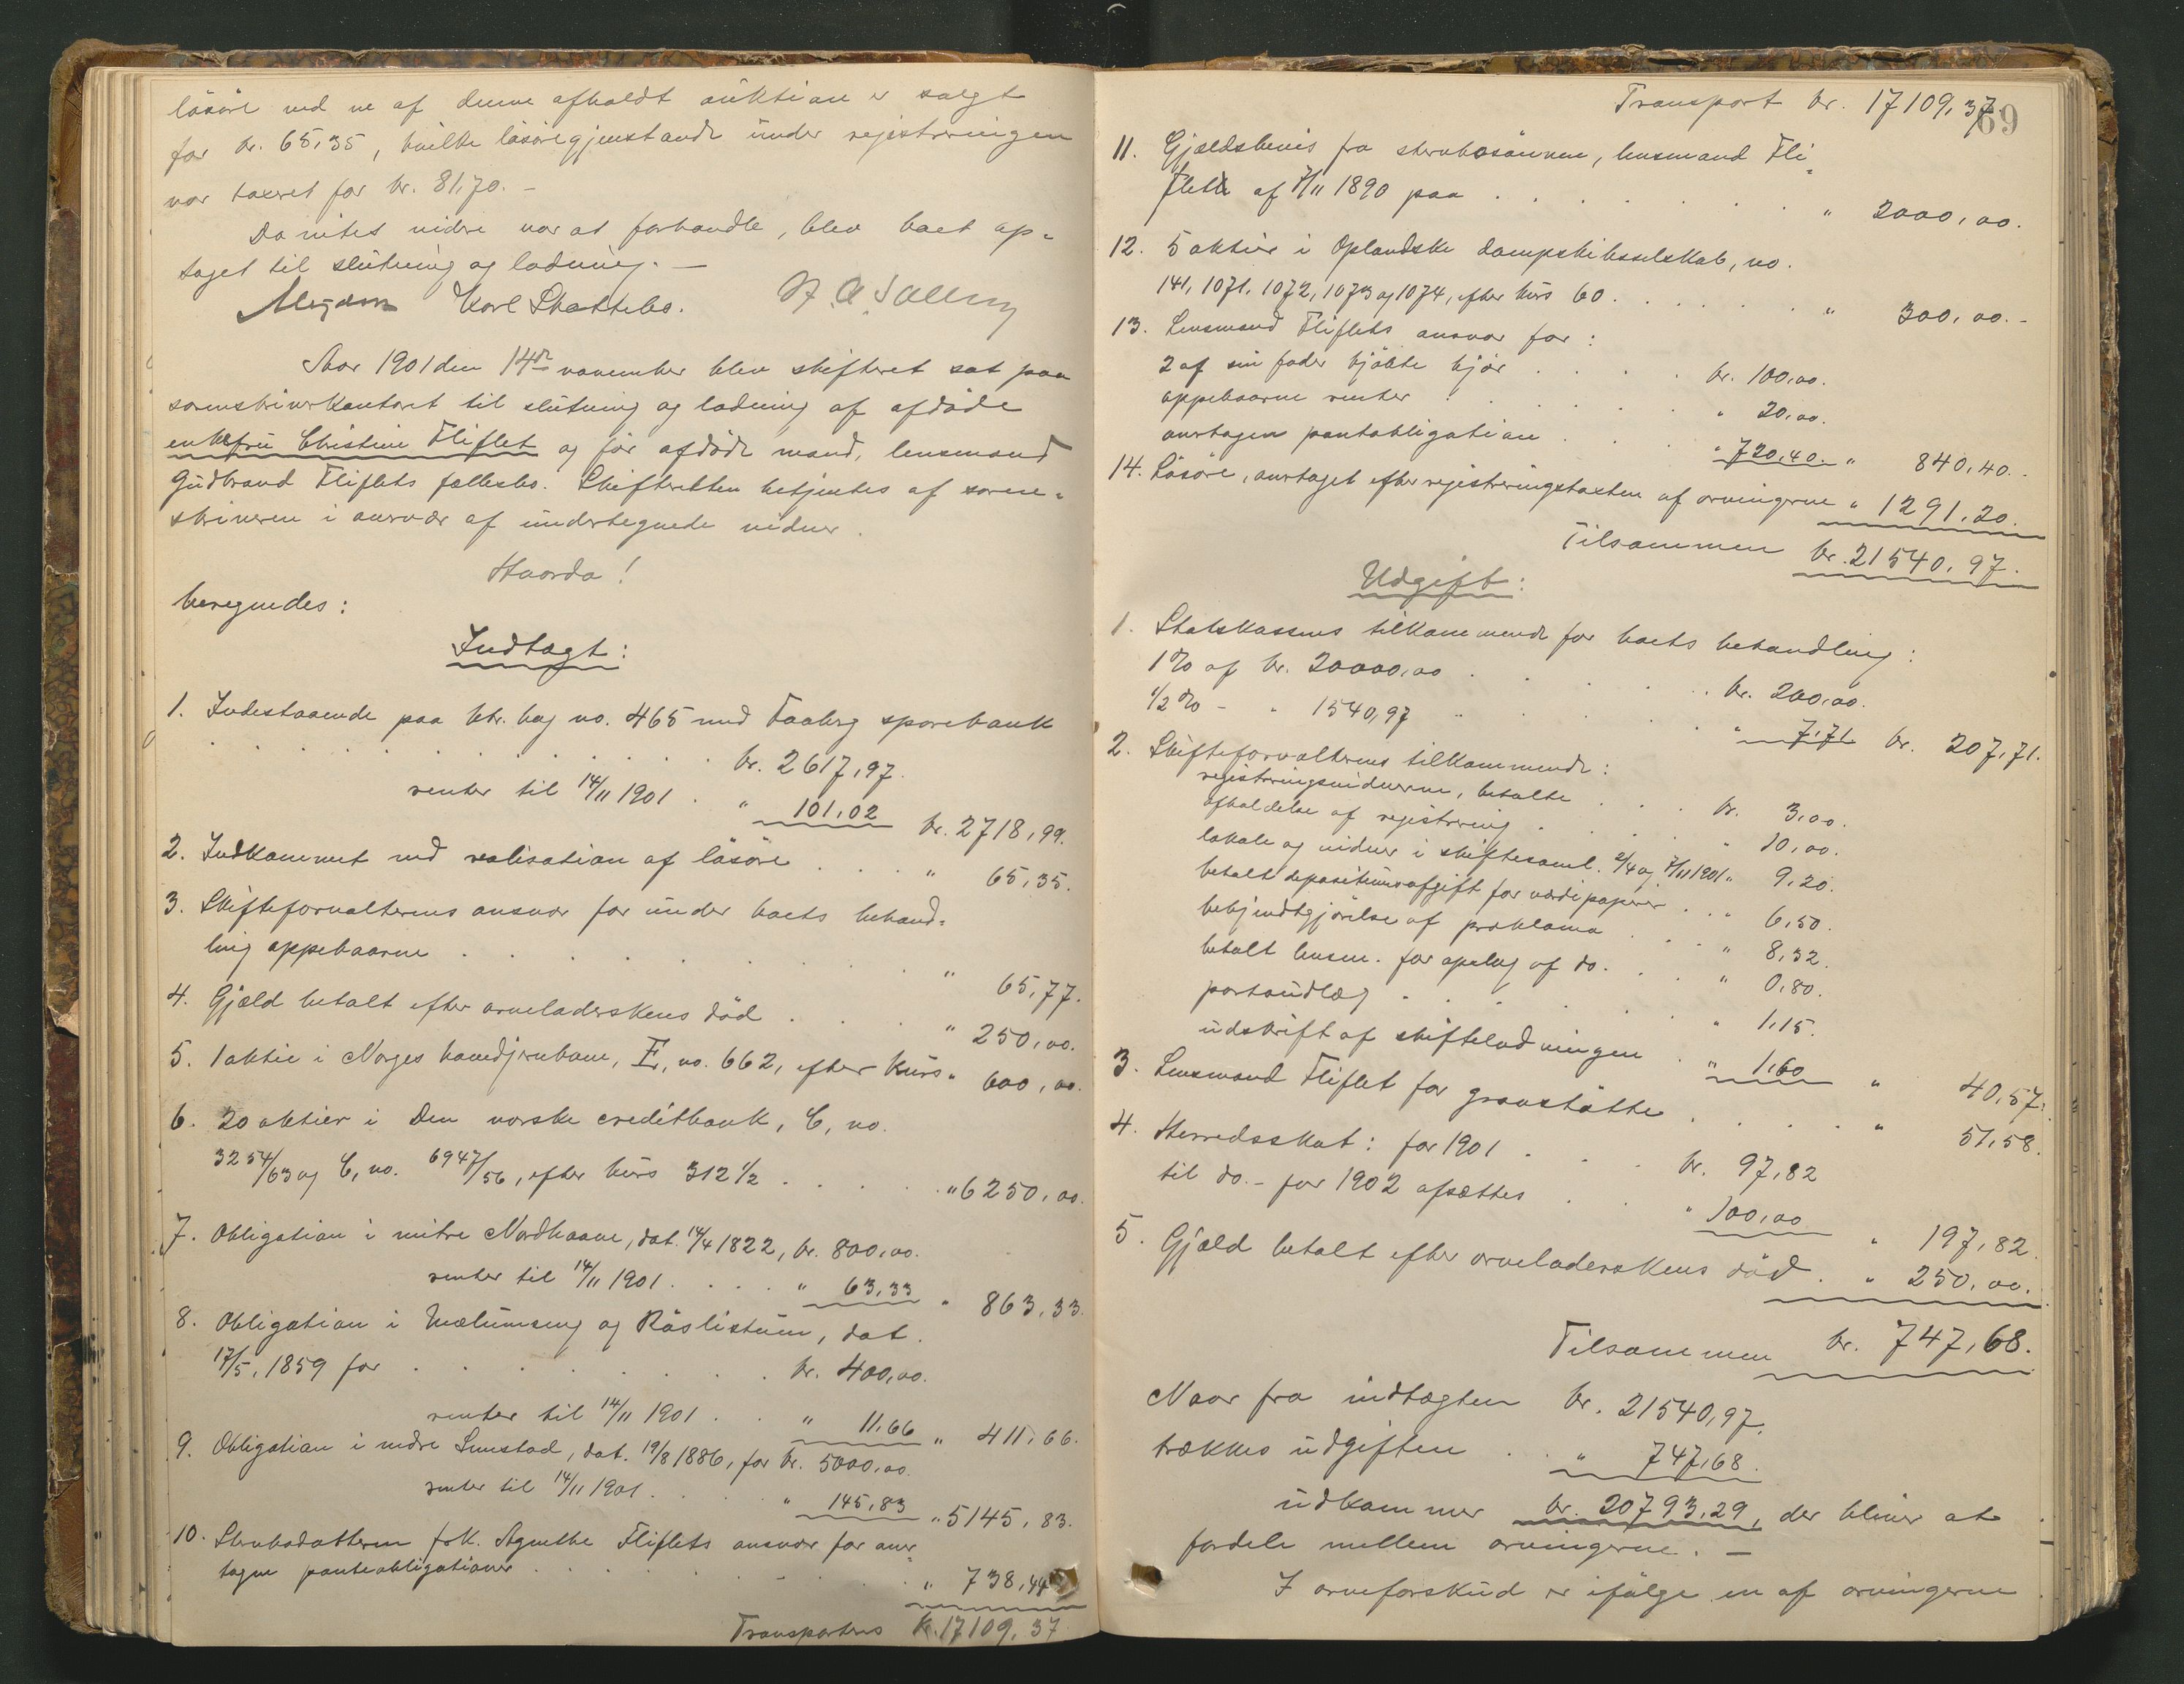 løsøre ved ne af denne afholdt auktion er solgt
for kr. 65,35, hvilke løsøregjenstande under registreringen
var taxeret for kr. 81,70. -
Da intet videre var at forhandle, blev boet op-
taget til slutning og lodning. -
Karl Skattebo.
Aar 1901 den 14de november blev skifteret sat paa
sorenskriverkontoret til slutning og lodning af afdøde
enkefru Christine Fliflet og før afdøde mand, lensmand
Gudbrand Fliflets fællesbo. Skifteretten betjentes af soren-
skriveren i overvær af undertegnede vidner.
Hvorda!
beregnedes:
Indtægt:
1. Indestaaende paa ktr. bog no. 465 med Faaberg sparebank
kr. 2617,97.
renter til 14/11 1901 . " 101,02 kr. 2718,99.
2. Indkommet ved realisation af løsøre . . . " 65,35.
3. Skifteforvalterens ansvar for under boets behand-
ling oppebaarne . . . " 65,77.
4. Gjæld betalt efter arveladerskens død . . . " 250,00.
5. 1 aktie i Norges hovedjernbane, E, no. 662, efter kurs " 600,00.
6. 20 aktier i Den norske creditbank, C, no.
3254/63 og C, no. 6947/56, efter kurs 312 1/2 . . . " 6250,00.
7. Obligation i nitre Nordhaave, dat. 14/4 1822, kr. 800,00.
renter til 14/11 1901 . . . " 63,33 " 863,33.
8. Obligation i Mælumseng og Røslistuen, dat.
17/5. 1859 for . . . kr. 400,00.
renter til 14/11 1901 . . " 11,66 " 411,66.
9. Obligation i nedre Sunstad, dat. 19/8 1886, for kr. 5000,00.
renter til 14/11 1901 . . . " 145,83 " 5145,83.
10. Stervbodatteren frk. Agnethe Fliflets ansvar for over-
tagne panteobligationer . . . " 738,44
Transporteres Kr. 17109,37
69
Transport kr. 17109,37.
11. Gjældsbevis fra stervbosønnen, lensmand Fli-
flet af 7/11 1890 paa . . . " 2000,00.
12. 5 aktier i Oplandske dampskibsselskab, no.
141, 1071, 1072, 1073 og 1074, efter kurs 60 . . . " 300,00.-
13. Lensmand Fliflets ansvar for:
2 af sin fader kjøbte kjør . . . kr. 100,00.
oppebaarne renter . . . " 20,00.
overtagen pantobligation . . . " 720,40. " 840,40.
14. Løsøre, overtaget efter registreringstaxten af arvingerne " 1291,20.
Tilsammen kr. 21540,97.
Udgift:
1. Statskassens tilkommende for boets behandling:
1 % af kr. 20000,00 . . . kr. 200,00.
1/2 % - " 1540,97 . . . " 7,71. kr. 207,71.
2. Skifteforvalterens tilkommende:
registreringsvidnerne, betalte . . . kr. 3,00.
afholdelse af registrering . . . " 10,00.
lokale og vidner i skiftesaml. 2/4 og 7/11 1901 " 9,20.
betalt depositumsafgift for værdipapirer . . " 6,50.
bekjendtgjørelse af proklama . . . " 8,32.
betalt lensm. for opslag af do. . . " 0,80.
portoudlæg . . . " 1,15.
udskrift af skiftelodningen . " 1,60 " 40,57.
3. Lensmand Fliflet for gravstøtte . . . " 51,58.
4. Herredsskat: for 1901 . . . kr. 97,82
til do. - for 1902 afsættes . . " 100,00 " 197,82.
5. Gjæld betalt efter arveladerskens død . " 250,00.
Tilsammen kr. 747,68.
Naar fra indtægten kr. 21540,97.
trækkes udgiften . . " 747,68.
udkommer kr. 20793,29, der bliver at
fordele mellem arvingerne. -
I arveforskud er ifølge en af arvingerne